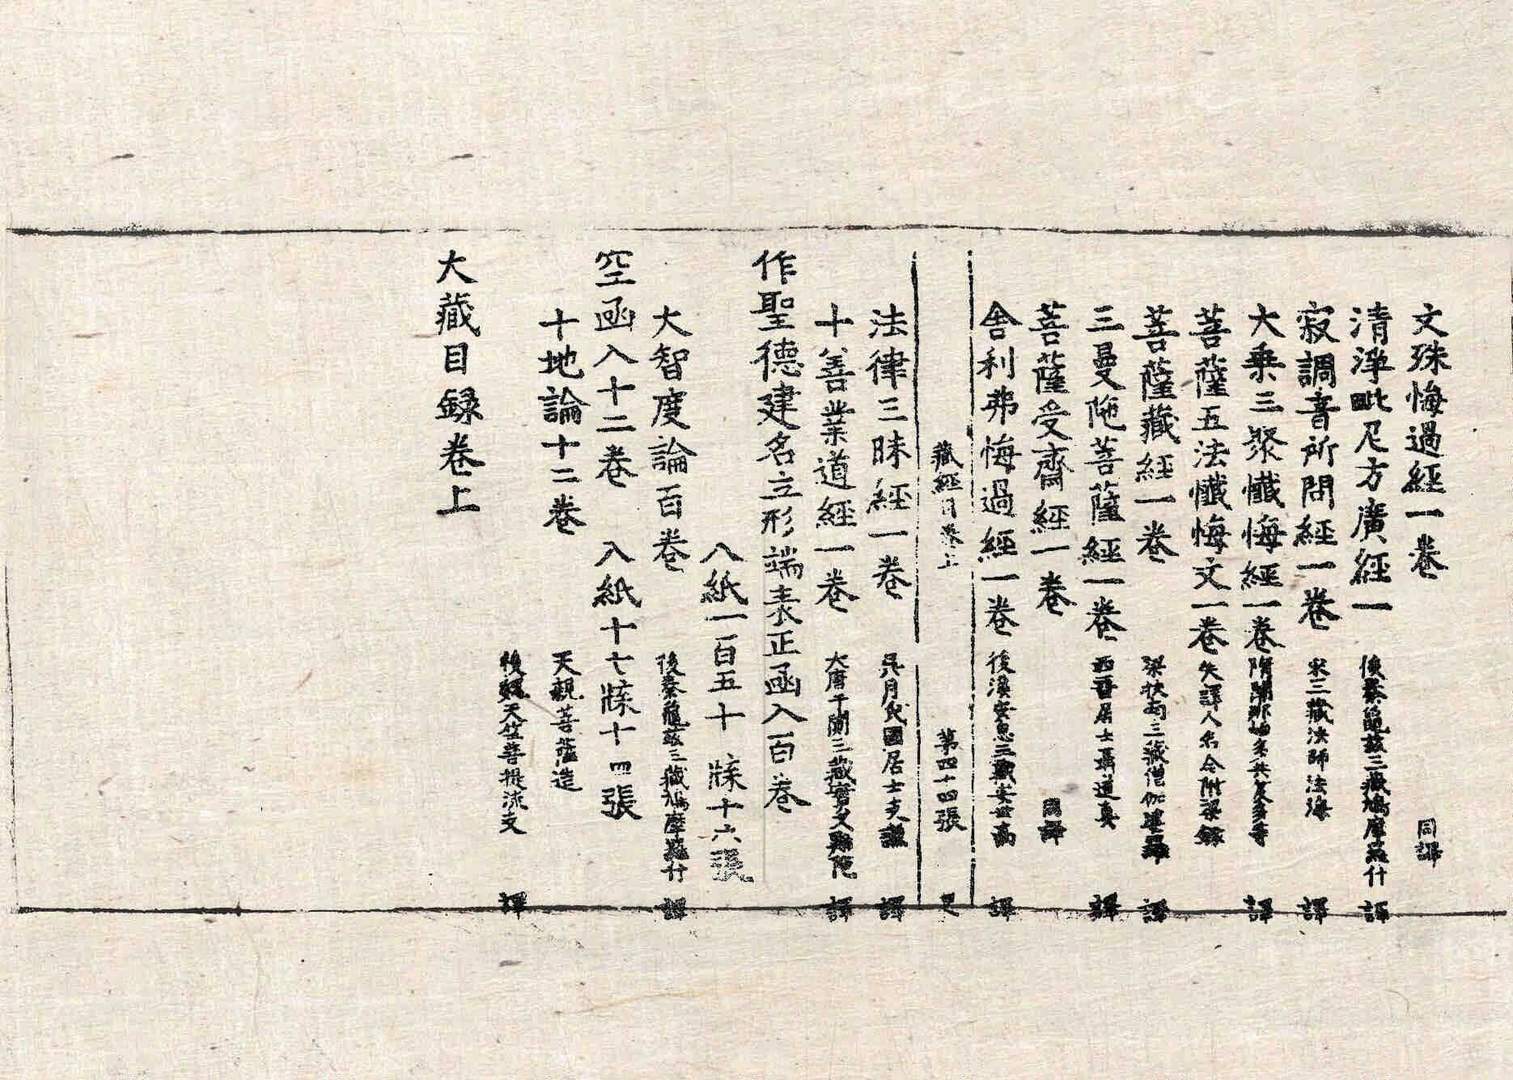 文殊悔過經一卷 同譯
清淨毗尼方廣經一 後秦龜茲三藏鳩摩羅什 譯
寂調音所問經一卷 宋三藏法師法海 譯
大乗三聚懺悔經一卷 隋闍那崛多共笈多等 譯
菩薩五法懺悔文一卷 失譯人名今附梁錄
菩薩藏經一卷 梁扶南三藏僧伽婆羅 譯
三曼陁菩薩經一卷 西晉居士聶道真 譯
菩薩受齋經一卷 同譯
舎利弗悔過經一卷 後漢安息三藏安世高 譯
藏經目卷上 第四十四張
法律三昧經一卷 吳月氏國居士支謙 譯
十善業道經一卷 大唐于闐三藏實叉難陁 譯
作聖德建名立形端表正函入一百卷
入紙一百五十 牒十六張
大智度論百卷 後秦龜茲三藏鳩摩羅什 譯
空函入十二卷 入紙十七牒十四張
十地論十二卷 天親菩薩造
後魏天竺菩提流支 譯
大藏目録卷上